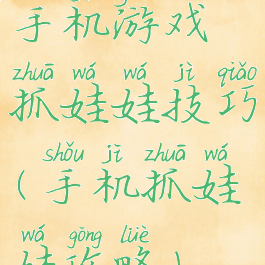 手机游戏
zhuā wá wá jì qiǎo
抓娃娃技巧
shǒu jī zhuā wá
(手机抓娃
wá gōng lüè
娃攻略)